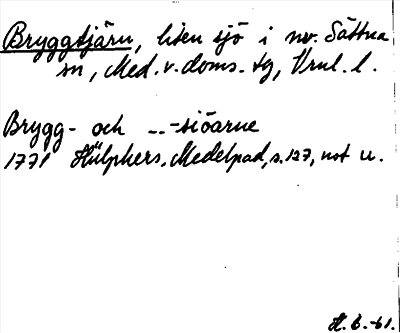 Bryggtjärn, liten sjö i nv. Sättna
sn, Med. v. doms. tg, Vrnl. l.
Brygg- och ...-siöarne
1771 Hülphers, Medelpad, s. 127, not u.
H. G. -61.